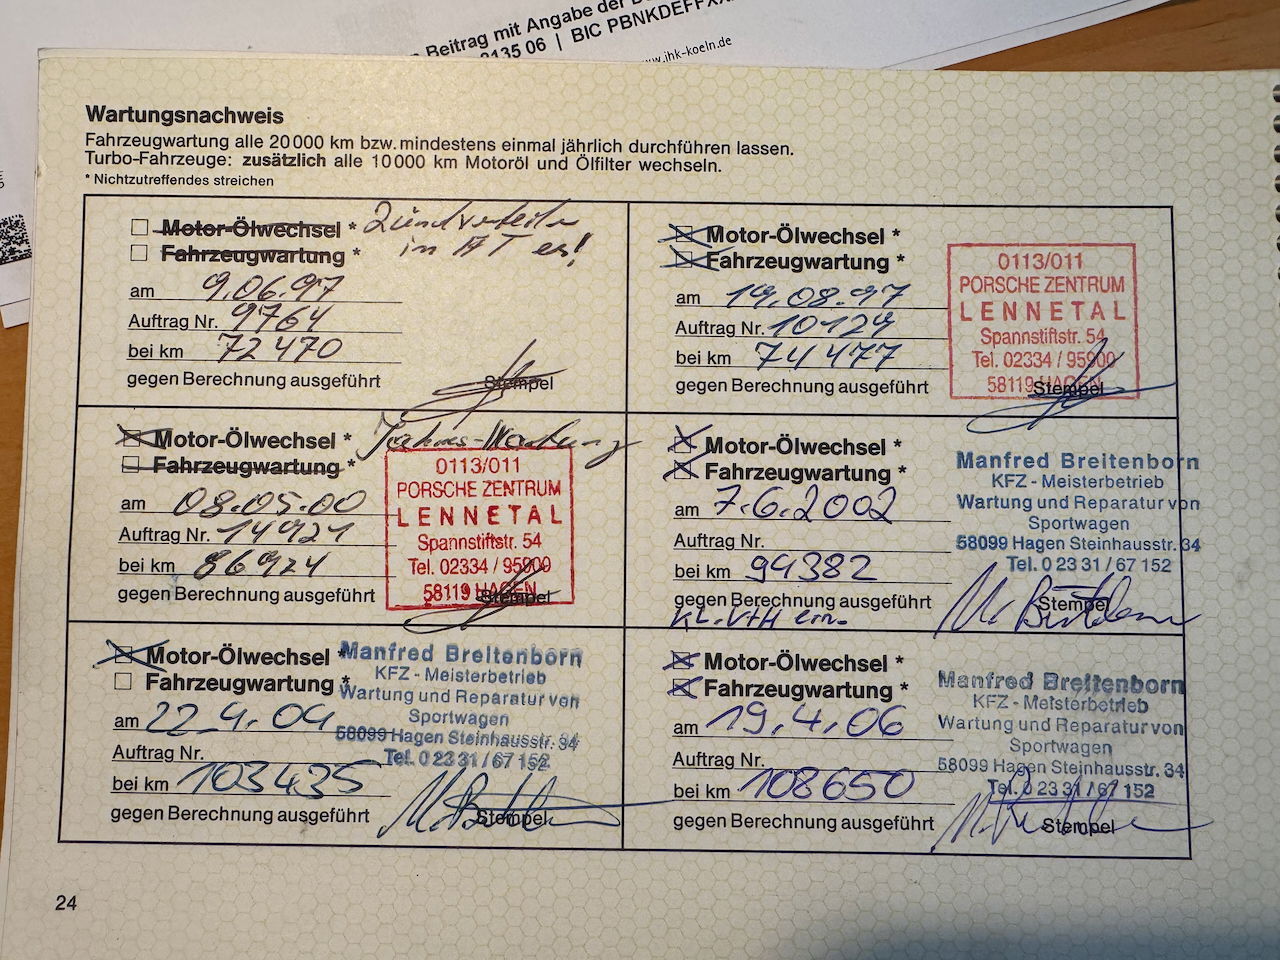 Beitrag mit Angabe der
0135 06 | BIC PBNKDEFFXXX
www.ihk-koeln.de
Wartungsnachweis
Fahrzeugwartung alle 20 000 km bzw. mindestens einmal jährlich durchführen lassen.
Turbo-Fahrzeuge: zusätzlich alle 10 000 km Motoröl und Ölfilter wechseln.
* Nichtzutreffendes streichen
Motor-Ölwechsel * Zündverteiler
Fahrzeugwartung * in AT er!
am 9.06.97
Auftrag Nr. 9764
bei km 72470
gegen Berechnung ausgeführt
Stempel
Motor-Ölwechsel *
Fahrzeugwartung *
am 19.08.97
Auftrag Nr. 10124
bei km 74477
gegen Berechnung ausgeführt
0113/011
PORSCHE ZENTRUM
LENNETAL
Spannstiftstr. 54
Tel. 02334 / 95900
58119 HAGEN
Stempel
Motor-Ölwechsel * Jahres-Wartung
Fahrzeugwartung *
am 08.05.00
Auftrag Nr. 14921
bei km 86924
gegen Berechnung ausgeführt
0113/011
PORSCHE ZENTRUM
LENNETAL
Spannstiftstr. 54
Tel. 02334 / 95900
58119 HAGEN
Stempel
Motor-Ölwechsel *
Fahrzeugwartung *
am 7.6.2002
Auftrag Nr.
bei km 99382
gegen Berechnung ausgeführt
Manfred Breitenborn
KFZ - Meisterbetrieb
Wartung und Reparatur von
Sportwagen
58099 Hagen Steinhausstr. 34
Tel. 0 23 31 / 67 152
Stempel
Motor-Ölwechsel *
Fahrzeugwartung *
am 22.4.04
Auftrag Nr.
bei km 103435
gegen Berechnung ausgeführt
Manfred Breitenborn
KFZ - Meisterbetrieb
Wartung und Reparatur von
Sportwagen
58099 Hagen Steinhausstr. 34
Tel. 0 23 31 / 67 152
Stempel
Motor-Ölwechsel *
Fahrzeugwartung *
am 19.4.06
Auftrag Nr.
bei km 108650
gegen Berechnung ausgeführt
Manfred Breitenborn
KFZ - Meisterbetrieb
Wartung und Reparatur von
Sportwagen
58099 Hagen Steinhausstr. 34
Tel. 0 23 31 / 67 152
Stempel
24